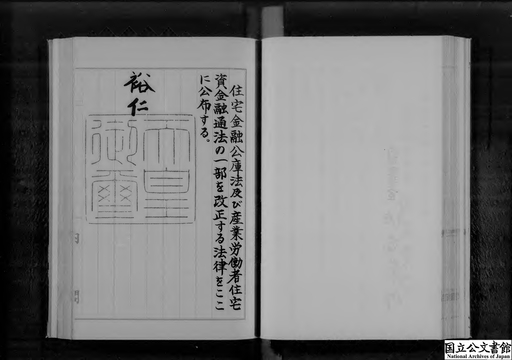 住宅金融公庫法及び産業労働者住宅
資金融通法の一部を改正する法律をここ
に公布する。
裕仁
天皇
御璽
国立公文書館
National Archives of Japan